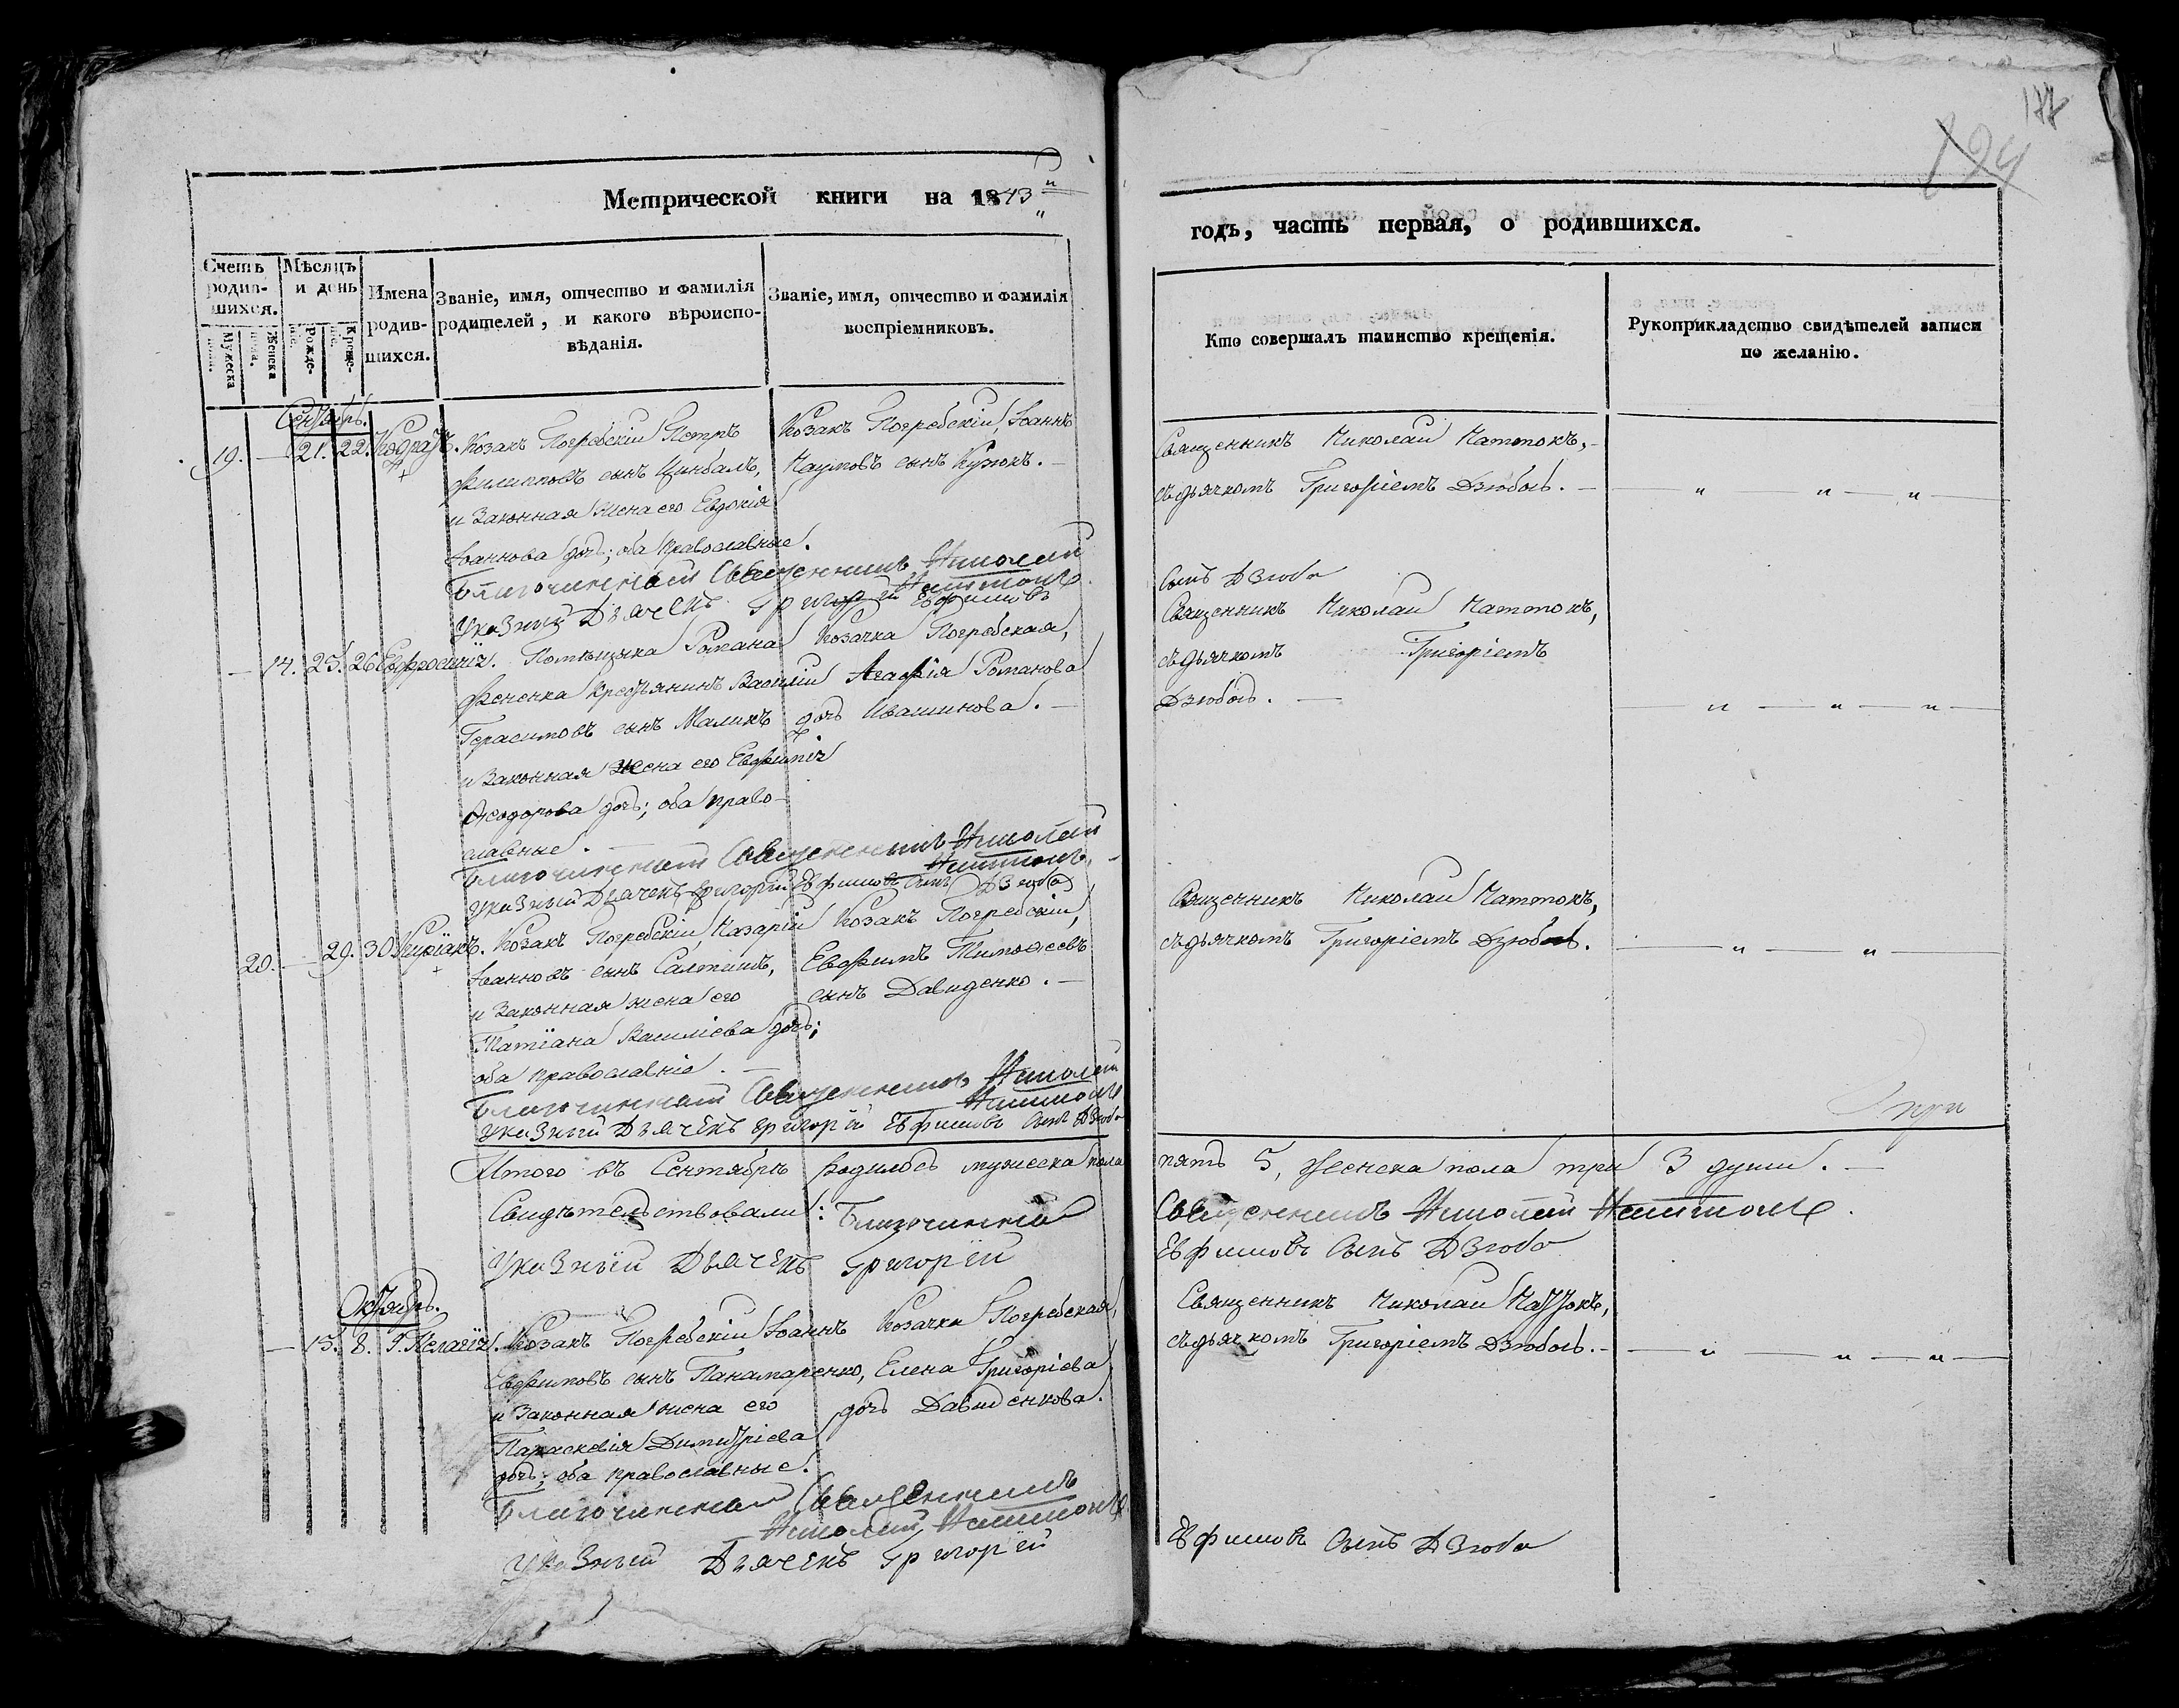 177
124
Метрической книги на 1843
годъ, часть первая, о родившихся.
Счетъ родив-шихся.
Мужеска пола.
Женска пола.
Мѣсяцъ и день
Рожде-нія.
Креще-нія.
Имена родив-шихся.
Званіе, имя, отчество и фамилія родителей, и какого вѣроиспо-вѣданія.
Званіе, имя, отчество и фамилія воспріемниковъ.
Кто совершалъ таинство крещенія.
Рукоприкладство свидѣтелей записи по желанію.
Сентябрь.
19. — 21. 22. Кодратъ. Козакъ Погребскій Петръ
Филипповъ сынъ Цимбалъ,
и законная жена его Евдокія
Іоаннова дочь; оба православные.
Козакъ Погребскій, Іоаннъ
Наумовъ сынъ Кузюкъ. —
Священникъ Николай Наттокъ, —
съ дьячкомъ Григоріемъ Дзюбою. —
Благочинный Священникъ Николай
Наттокъ
Указный Дьячекъ Григорій Ефимовъ
Сынъ Дзюба
— 14. 25. 26. Евфросинія. Помѣщика Романа
Фененка крестьянинъ Василій
Герасимовъ сынъ Маликъ
и законная жена его Евфимія
Ѳеодорова дочь; оба право-
славные. —
Козачка Погребская,
Агафія Романова
дочь Ивашинова. —
Священникъ Николай Наттокъ,
съ дьячкомъ Григоріемъ
Дзюбою. —
Благочинный Священникъ Николай
Наттокъ.
Указный Дьячекъ Григорій Ефимовъ Сынъ Дзюба
20. — 29. 30. Киріакъ. Козакъ Погребскій, Назарій
Іоанновъ сынъ Салтишъ,
и законная жена его
Татіана Василіева дочь;
оба православніе. —
Козакъ Погребскій,
Евфимъ Тимофеевъ
сынъ Давиденко. —
Священникъ Николай Наттокъ,
съ дьячкомъ Григоріемъ Дзюбою.
Благочинный Священникъ Николай
Наттокъ
Указный Дьячекъ Григорій Ефимовъ Сынъ Дзюба
три
Итого въ Сентябрѣ родилось мужеска пола пять 5, женска пола три 3 души. —
Свидѣтельствовали: Благочинный Священникъ Николай Наттокъ.
Указный Дьячекъ Григорій Ефимовъ Сынъ Дзюба
Октябрь.
— 15. 8. Пелагія. Козакъ Погребскій Іоаннъ
Евфимовъ сынъ Панамаренко,
и законная жена его
Параскевія Димитріева
дочь; оба православные.
Козачка Погребская,
Елена Григоріева
дочь Давиденкова.
Священникъ Николай Наттокъ,
съ дьячкомъ Григоріемъ Дзюбою. —
Благочинный Священникъ
Николай Наттокъ
Указный Дьячекъ Григорій
Ефимовъ Сынъ Дзюба